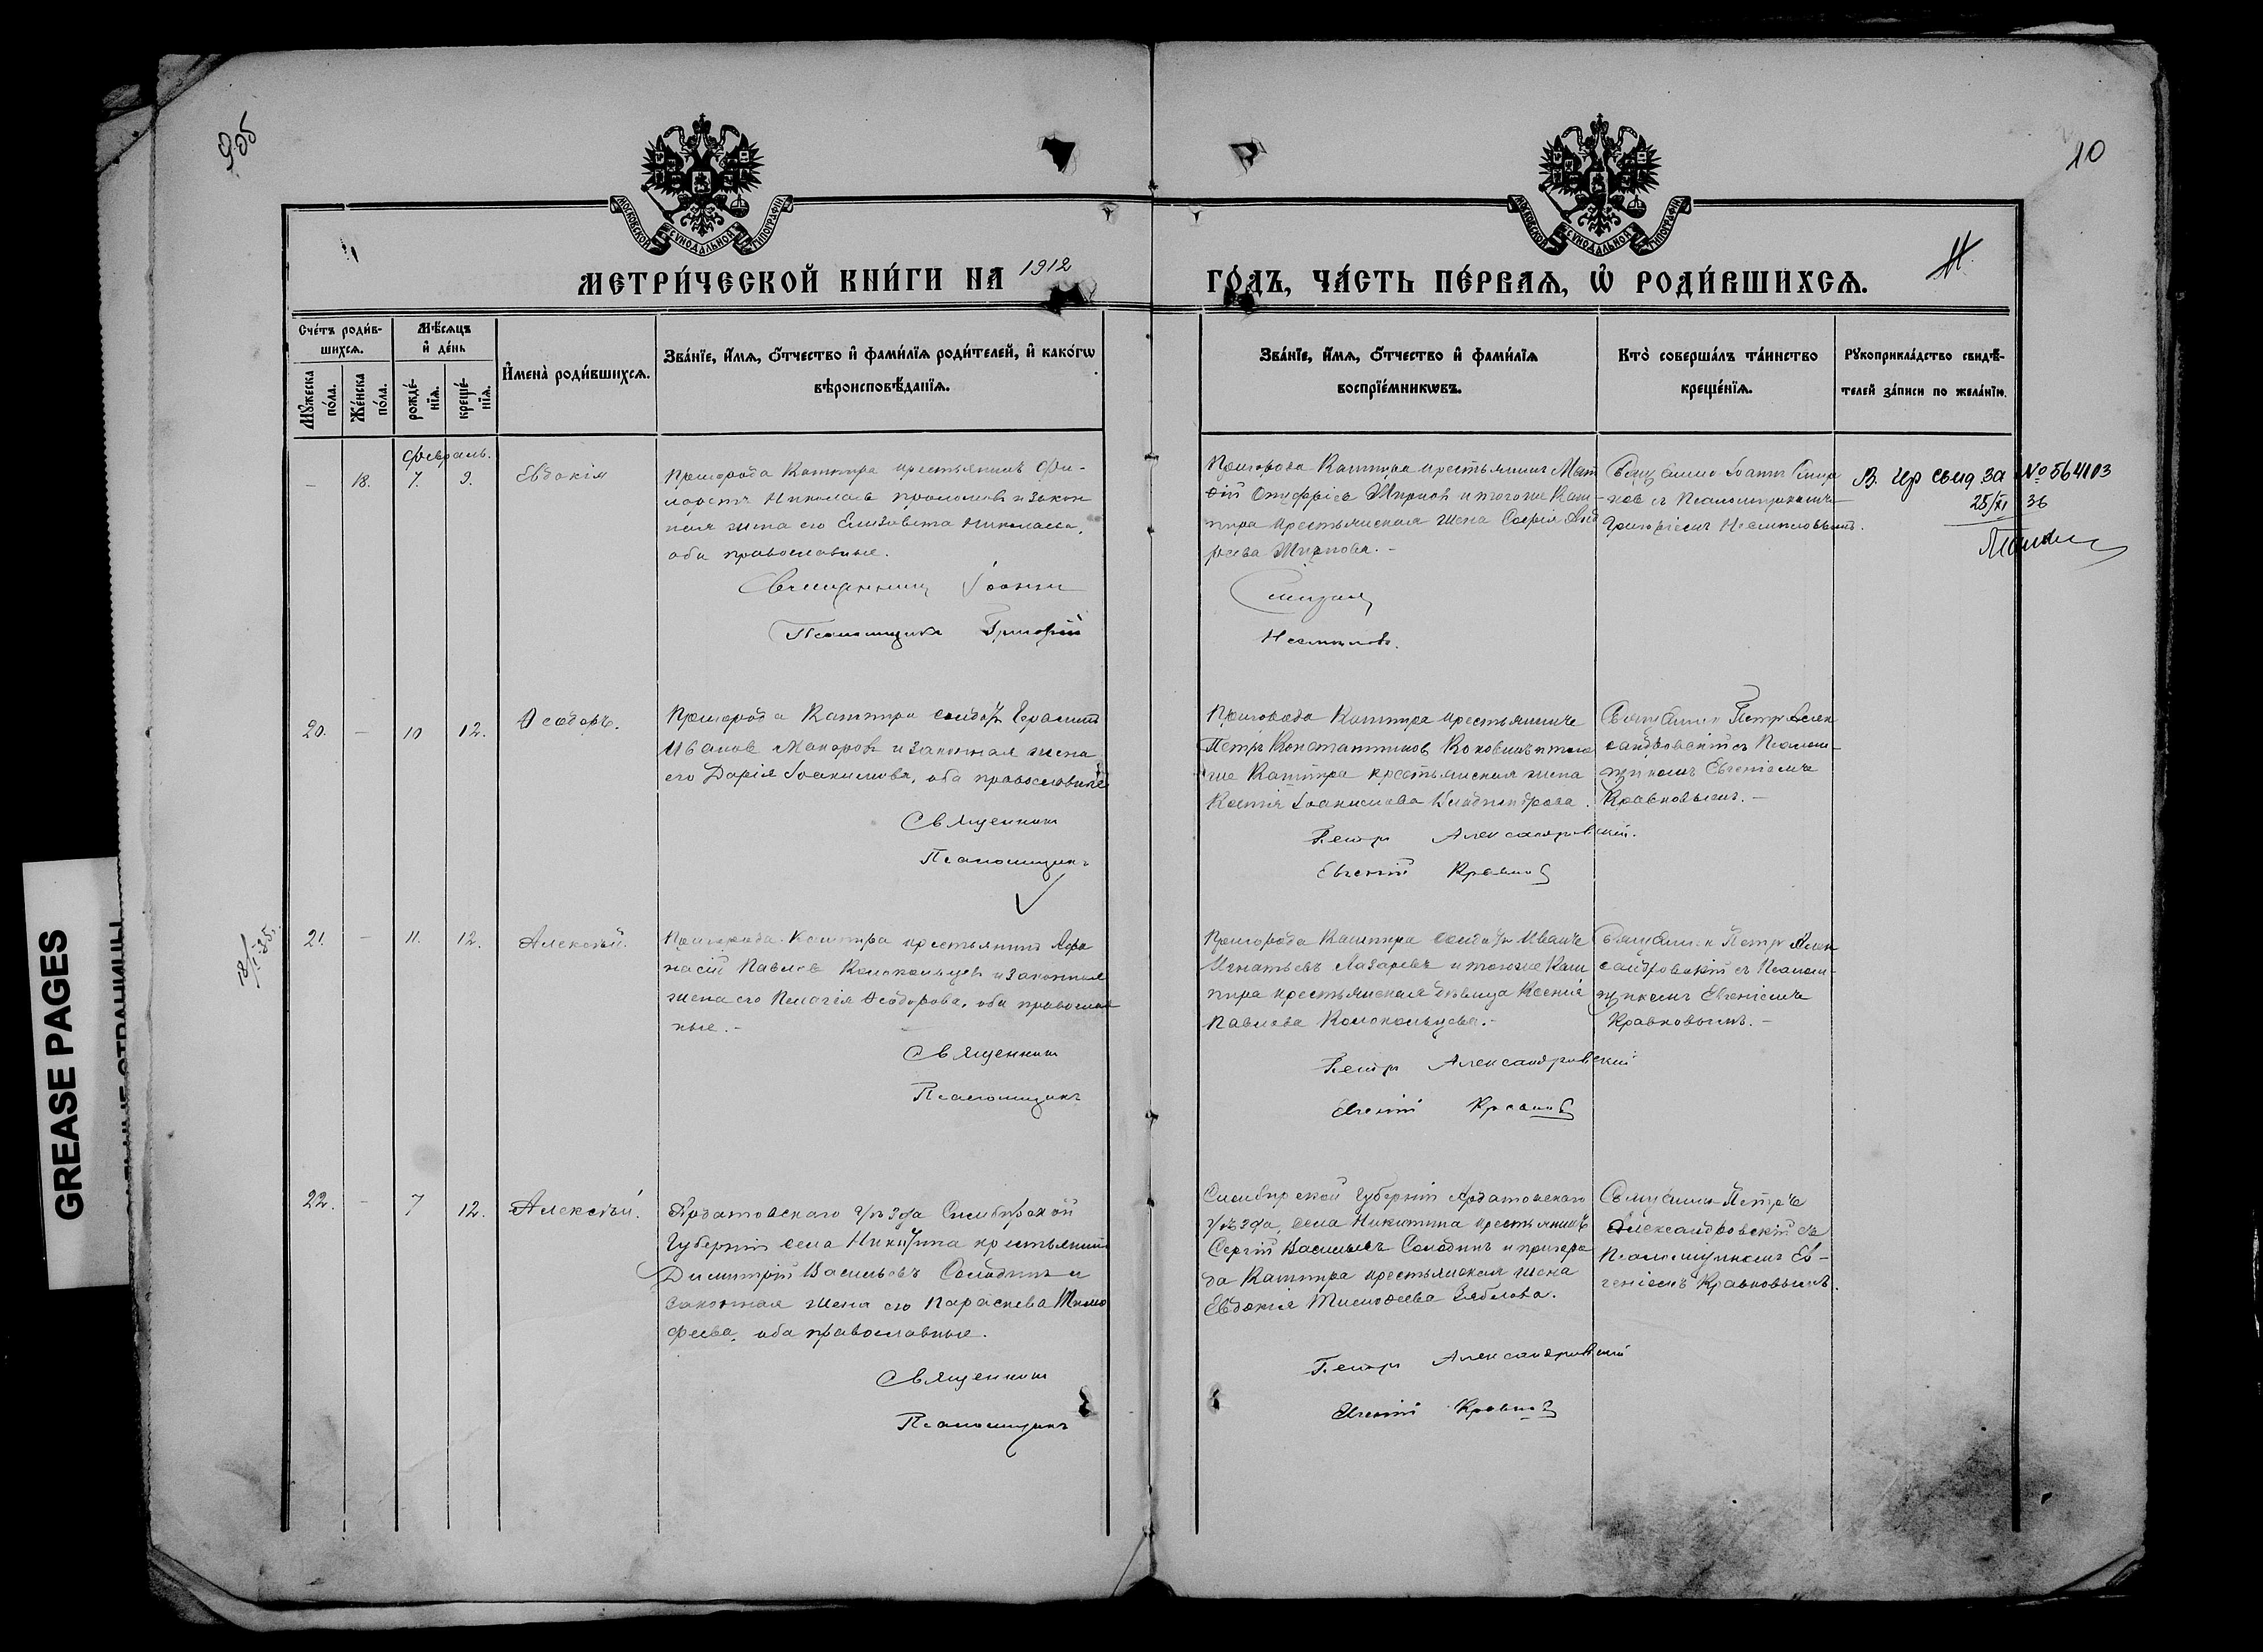 955
10
МОСКОВСКОЙ СѴНОДАЛЬНОЙ ТИПОГРАФІИ
МОСКОВСКОЙ СѴНОДАЛЬНОЙ ТИПОГРАФІИ
МЕТРИ́ЧЕСКОЙ КНИ́ГИ НА 1912
ГО́ДЪ, ЧА́СТЬ ПЕ́РВАѦ, Ѡ҆ РОДИ́ВШИХСѦ.
Сче́тъ роди́в-
шихсѧ.
Мѣ́сѧцъ
и҆ де́нь
Мꙋ́жеска по́ла.
Же́нска по́ла.
рожде́-
нїѧ.
креще́-
нїѧ.
И҆мена̀ роди́вшихсѧ.
Зва́нїе, и҆́мѧ, ѻ҆́тчество и҆ фами́лїѧ роди́телей, и҆ како́гѡ
вѣроисповѣ́данїѧ.
Зва́нїе, и҆́мѧ, ѻ҆́тчество и҆ фами́лїѧ
воспрїе́мникѡвъ.
Кто̀ соверша́лъ та́инство
креще́нїѧ.
Рꙋкоприкла́дство свидѣ́-
телей за́писи по жела́нїю.
Февраль.
– 18. 7. 9. Евдокія
Пригорода Кашпира крестьянинъ Фи-
лоретъ Николаевъ и закон
ная жена его Елизавета Николаева,
оба православные.
Священникъ Іоаннъ
Псаломщикъ Григорій
Пригорода Кашпира крестьянинъ Мат
ѳій и тогоже Каш-
пира крестьянская жена Софія Анд
реева
Смирнов
Несмѣловъ.
Священник Іоаннъ Смир
нов с Псаломщикомъ
Григоріемъ Несмѣловымъ.
В. свид за № 564103
25/XI 36
20. – 10 12. Ѳеодоръ.
Пригорода Кашпира солдатъ Герасимъ
Иванов Макаровъ и законная жена
его Дарія Іоакимова, оба православные
Священникъ
Псаломщикъ
Пригорода Кашпира крестьянинъ
Петръ Константинов и того
же Кашпира крестьянская жена
Іоакимова
Петръ Александровскій.
Евгеній Кравков
Священник Петръ Алек
сандровскій съ Псалом-
щикомъ Евгеніемъ
Кравковымъ. –
21. – 11. 12. Алексѣй.
Пригорода Кашпира крестьянинъ Аѳа
насій Павлов Колокольцевъ и законная
жена его Пелагея Ѳеодорова, оба православ
ные. –
Священникъ
Псаломщикъ
Пригорода Кашпира солдатъ Иванъ
Игнатьевъ Лазаревъ и тогоже Каш
пира крестьянская дѣвица Ксенія
Павлова Колокольцева. –
Петръ Александровскій
Евгеній Кравков
Священник Петръ Алек
сандровскій съ Псалом-
щикомъ Евгеніемъ
Кравковымъ. –
22. – 7 12. Алексѣй.
Ардатовскаго уѣзда Симбирской
Губерніи села Никитина крестьянинъ
Димитрій Васильевъ Солодинъ и
законная жена его Параскева Тимо
феева, оба православные.
Священникъ
Псаломщикъ
Симбирской Губерніи Ардатовскаго
уѣзда, села Никитина крестьянинъ
Сергій Васильевъ Солодинъ и пригоро
да Кашпира крестьянская жена
Евдокія Тимоѳеева Зяблова.
Петръ Александровскій
Евгеній Кравков
Священник Петръ
Александровскій съ
Псаломщикомъ Ев-
геніемъ Кравковымъ.
GREASE PAGES